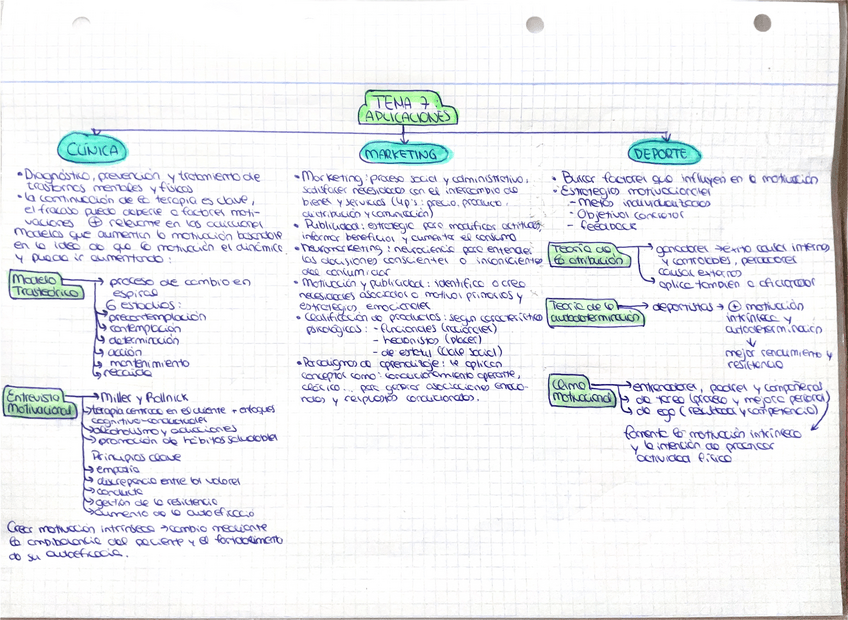 TEMA 7:
APLICACIONES
CLÍNICA
• Diagnóstico, prevención y tratamiento de
trastornos mentales y físicos
• la continuación de la terapia es clave,
el fracaso puede deberse a factores moti-
vaciones ⊕ relevante en las adicciones
Modelos que aumentan la motivación basándose
en la idea de que la motivación es dinámica
y puede ir aumentando:
Modelo
Trasteórico
proceso de cambio en
espiral
6 estadios:
precontemplación
contemplación
determinación
acción
mantenimiento
recaída
Entrevista
Motivacional
Miller y Rollnick
terapia centrada en el cliente + enfoques
cognitivo-conductuales
alcoholismo y adicciones
promoción de hábitos saludables
Principios clave
empatía
discrepancia entre los valores
conducta
gestión de la resistencia
aumento de la autoeficacia
Crear motivación intrínseca → cambio mediante
la ambivalencia del paciente y el fortalecimiento
de su autoeficacia.
MARKETING
• Marketing: proceso social y administrativo,
satisfacer necesidades con el intercambio de
bienes y servicios (4p's: precio, producto,
distribución y comunicación)
• Publicidad: estrategia para modificar actitudes,
informar beneficios y aumentar el consumo
• Neuromarketing: neurociencia para entender
las decisiones conscientes o inconscientes
del consumidor
• Motivación y publicidad: identifica o crea
necesidades asociadas a motivos primarios y
estrategias emocionales
• Clasificación de productos: según características
psicológicas: - funcionales (racionales)
- hedonistas (placer)
- de estatus (clase social)
• Paradigmas de aprendizaje: se aplican
conceptos como: condicionamiento operante,
clásico... para generar asociaciones emocio-
nales y respuestas condicionadas.
DEPORTE
• Buscar factores que influyen en la motivación
• Estrategias motivacionales
- metas individualizadas
- Objetivos concretos
- feedback
Teoría de
la atribución
ganadores → éxito causas internas
y controlables, perdedores
causas externas
aplica también a aficionados
Teoría de la
autodeterminación
deportistas → ⊕ motivación
intrínseca y
autodeterminación
mejor rendimiento y
resistencia
Clima
motivacional
entrenadores, padres y compañeros
de tarea (proceso y mejora personal)
de ego (resultados y competencia)
fomenta la motivación intrínseca
y la intención de practicar
actividad física